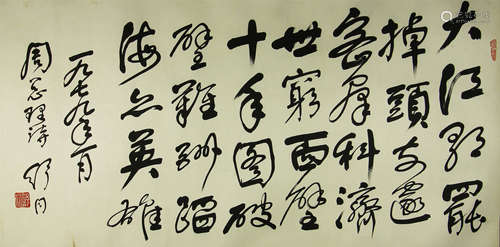 大江歌罷
掉頭東邃
密群科濟
世窮面壁
十年圖破
壁難酬蹈
海亦英雄
一九七九年一月
周总理詩 舒同